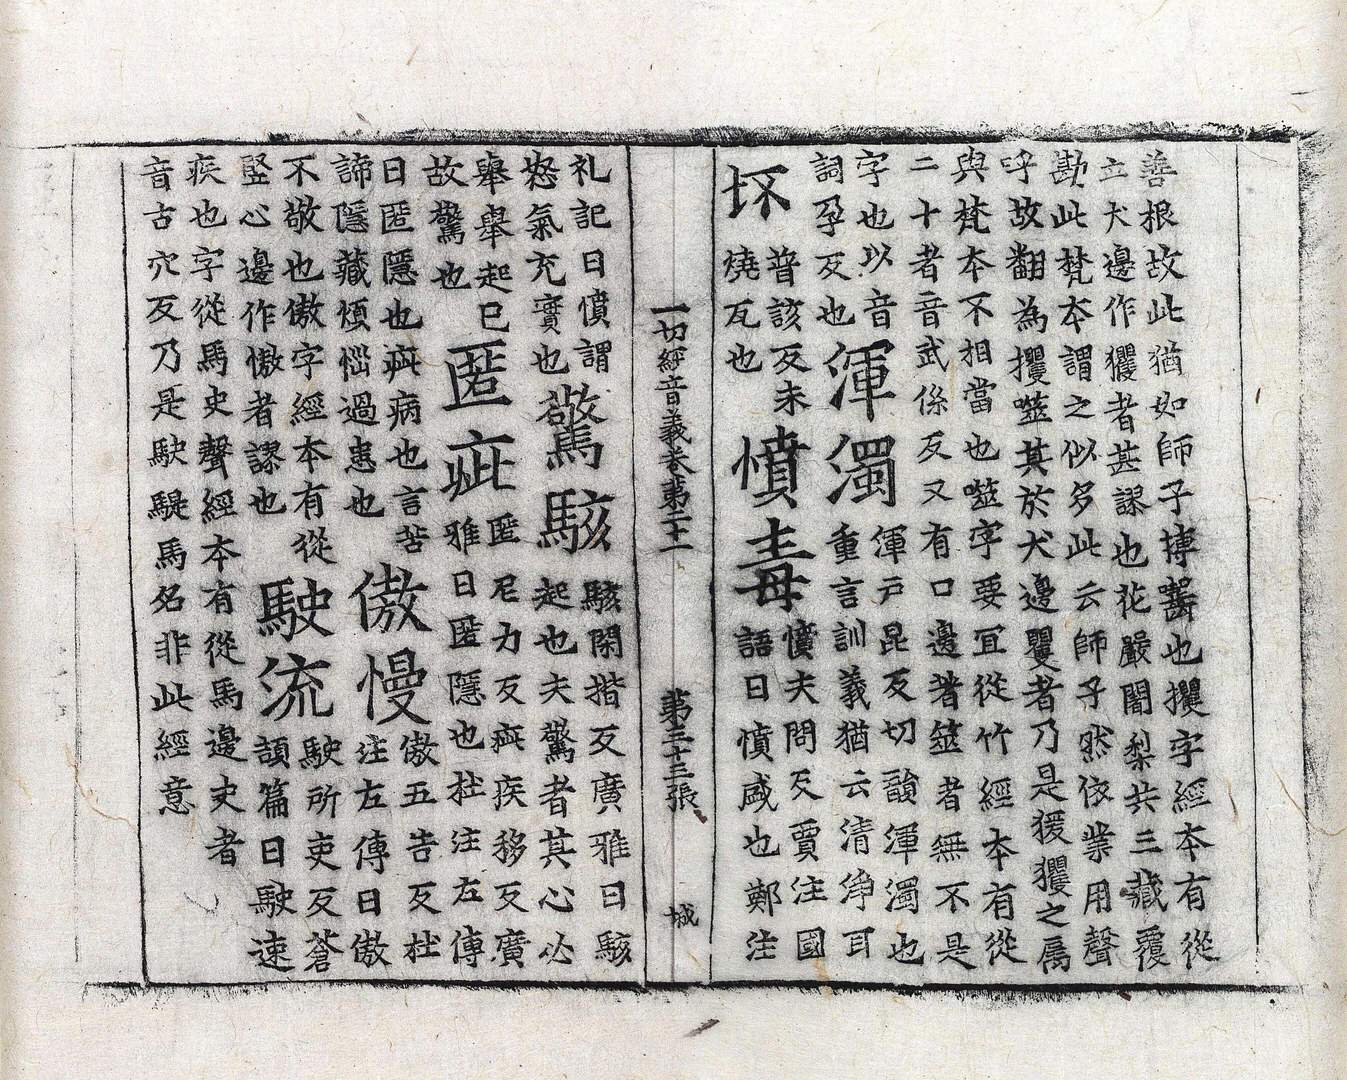 善根故此猶如師子搏齧也攫字經本有從
立犬邊作玃者甚謬也花嚴闍梨共三藏覆
勘此梵本謂之似多此云師子然依業用聲
呼故翻為攫噬其於犬邊矍者乃是猨玃之属
與梵本不相當也噬字要冝從竹經本有從
二十者音武係反又有口邊著筮者無不是
字也以音
詞孕反也
渾濁
渾戸昆反切韻渾濁也
重言訓義猶云清淨耳
坏
普該反未
燒瓦也
憤毒
憤夫問反賈注國
語曰憤盛也鄭注
一切經音義卷第二十一 第三十三張 城
礼記曰憤謂
怒氣充實也
驚駭
駭閑揩反廣雅曰駭
起也夫驚者其心必
舉舉起已
故驚也
匿疵
匿尼力反疵疾移反廣
雅曰匿隱也杜注左傳
曰匿隱也疵病也言苦
諦隱藏煩惱過患也
傲慢
傲五告反杜
注左傳曰傲
不敬也傲字經本有從
竪心邊作憿者謬也
駛流
駛所吏反蒼
頡篇曰駛速
疾也字從馬史聲經本有從馬邊史者
音古穴反乃是駃騠馬名非此經意